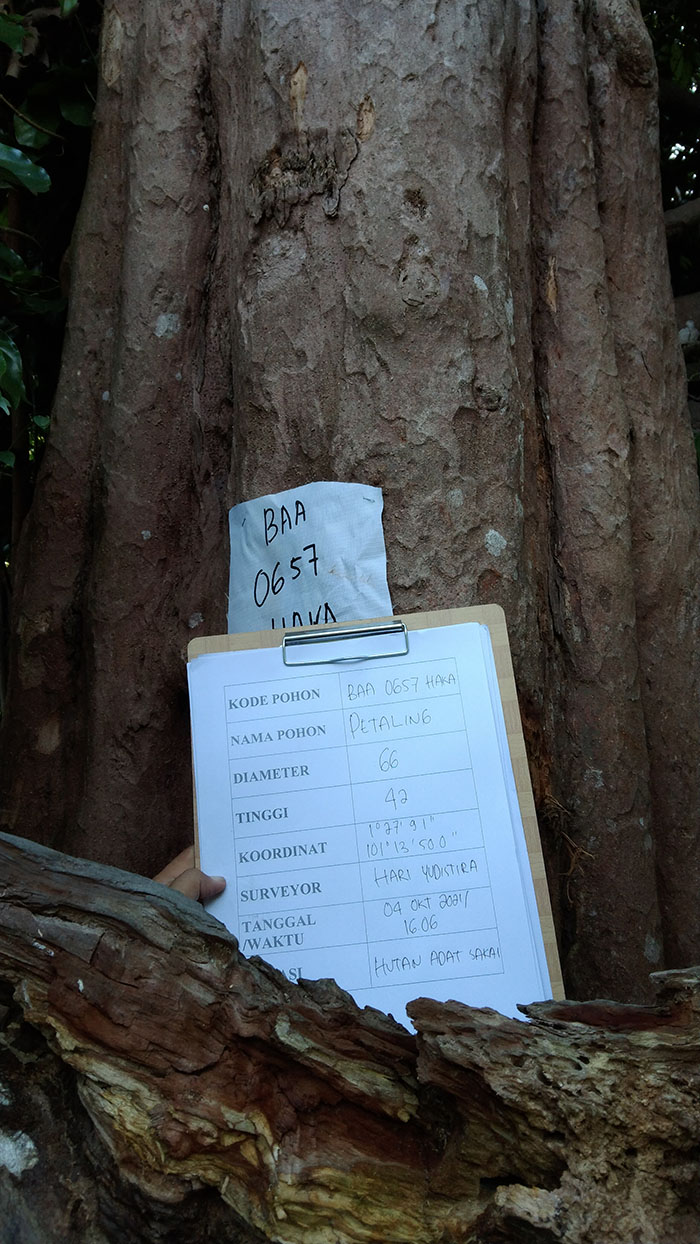 BAA
0657
HAKA
KODE POHON BAA 0657 HAKA
NAMA POHON PETALING
DIAMETER 66
TINGGI 42
KOORDINAT 1°27'91"
101°13'500"
SURVEYOR HARI YUDISTIRA
TANGGAL 04 OKT 2021/
/WAKTU 16.06
ASI HUTAN ADAT SAKAI